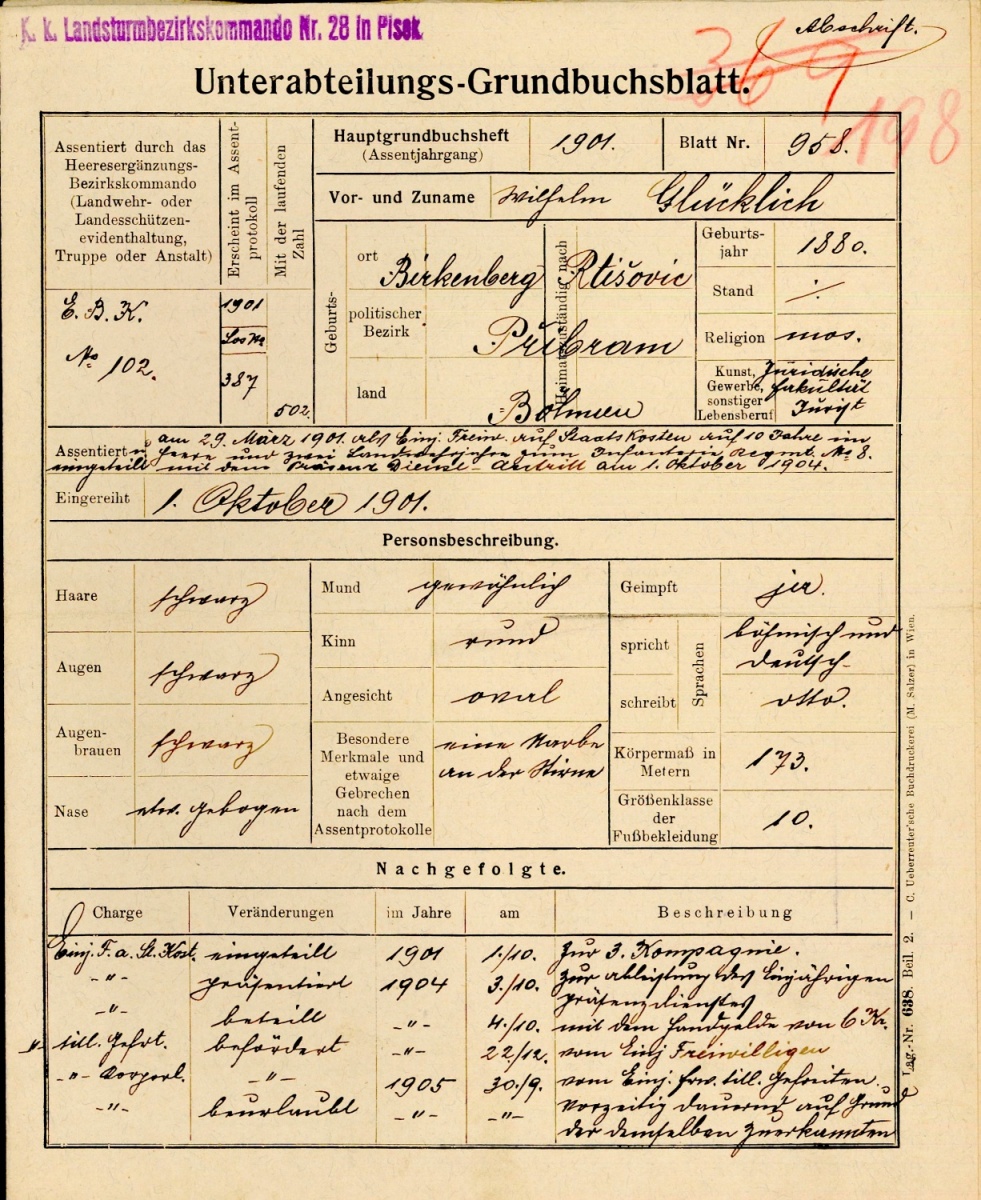 K. k. Landsturmbezirkskommando Nr. 28 in Pisek
Abschrift.
369
198
Unterabteilungs-Grundbuchsblatt.
Assentiert durch das
Heeresergänzungs-
Bezirkskommando
(Landwehr- oder
Landesschützen-
evidenthaltung,
Truppe oder Anstalt)
Erscheint im Assent-
protokoll
Mit der laufenden
Zahl
Hauptgrundbuchsheft
(Assentjahrgang)
1901.
Blatt Nr.
958.
Vor- und Zuname
Wilhelm Glücklich
E. B. K.
No 102.
1901
Los No
387
502.
Geburts-
ort
Birkenberg
politischer
Bezirk
Přibram
land
Böhmen
Heimatzuständig nach
Rtišovic
Geburts-
jahr
1880.
Stand
Religion
mos.
Kunst,
Gewerbe,
sonstiger
Lebensberuf
Juridische
Fakultät
Jurist
Assentiert u.
eingeteilt
am 29. März 1901. als Einj. Freiw. auf Staatskosten auf 10 Jahre im
Heere und zwei Landwehrjahre zum Infanterie Regmt. No 8.
mit dem Präsenz Dienst-Antritt am 1. Oktober 1904.
Eingereiht
1. Oktober 1901.
Personsbeschreibung.
Haare
schwarz
Augen
schwarz
Augen-
brauen
schwarz
Nase
etw. gebogen
Mund
gewöhnlich
Kinn
rund
Angesicht
oval
Besondere
Merkmale und
etwaige
Gebrechen
nach dem
Assentprotokolle
eine Narbe
an der Stirne
Geimpft
ja.
spricht
schreibt
Sprachen
böhmisch und
deutsch
dtto.
Körpermaß in
Metern
173.
Größenklasse
der
Fußbekleidung
10.
Nachgefolgte.
Charge Veränderungen im Jahre am Beschreibung
Einj. F. a. St. Kost. eingeteilt 1901 1./10. Zur 3. Kompagnie.
-"- präsentiert 1904 3./10. Zur Ableistung des Einjährigen
Präsenzdienstes
-"- beteilt -"- 4./10. mit dem Handgelde von 6 Kr.
-"- tit. Gefrt. befördert -"- 22/12. vom Einj Freiwilligen
-"- Korporl. -"- 1905 30./9. vom Einj. Frw. tit. Gefreiten.
-"- beurlaubt -"- -"- vorzeitig dauernd auf Grund
der demselben zuerkannten
Lag.-Nr. 638. Beil. 2. — C. Ueberreuter'sche Buchdruckerei (M. Salzer) in Wien.